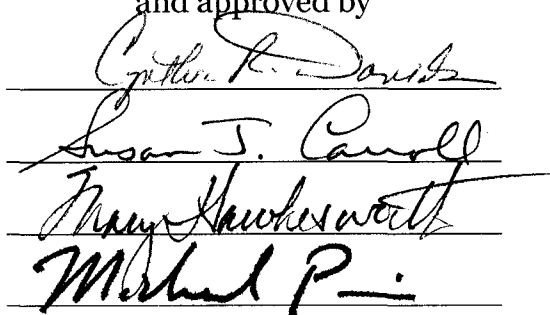 and approved by
Cynthia R. Daniels
Susan J. Carroll
Mary Hawkesworth
Michael P